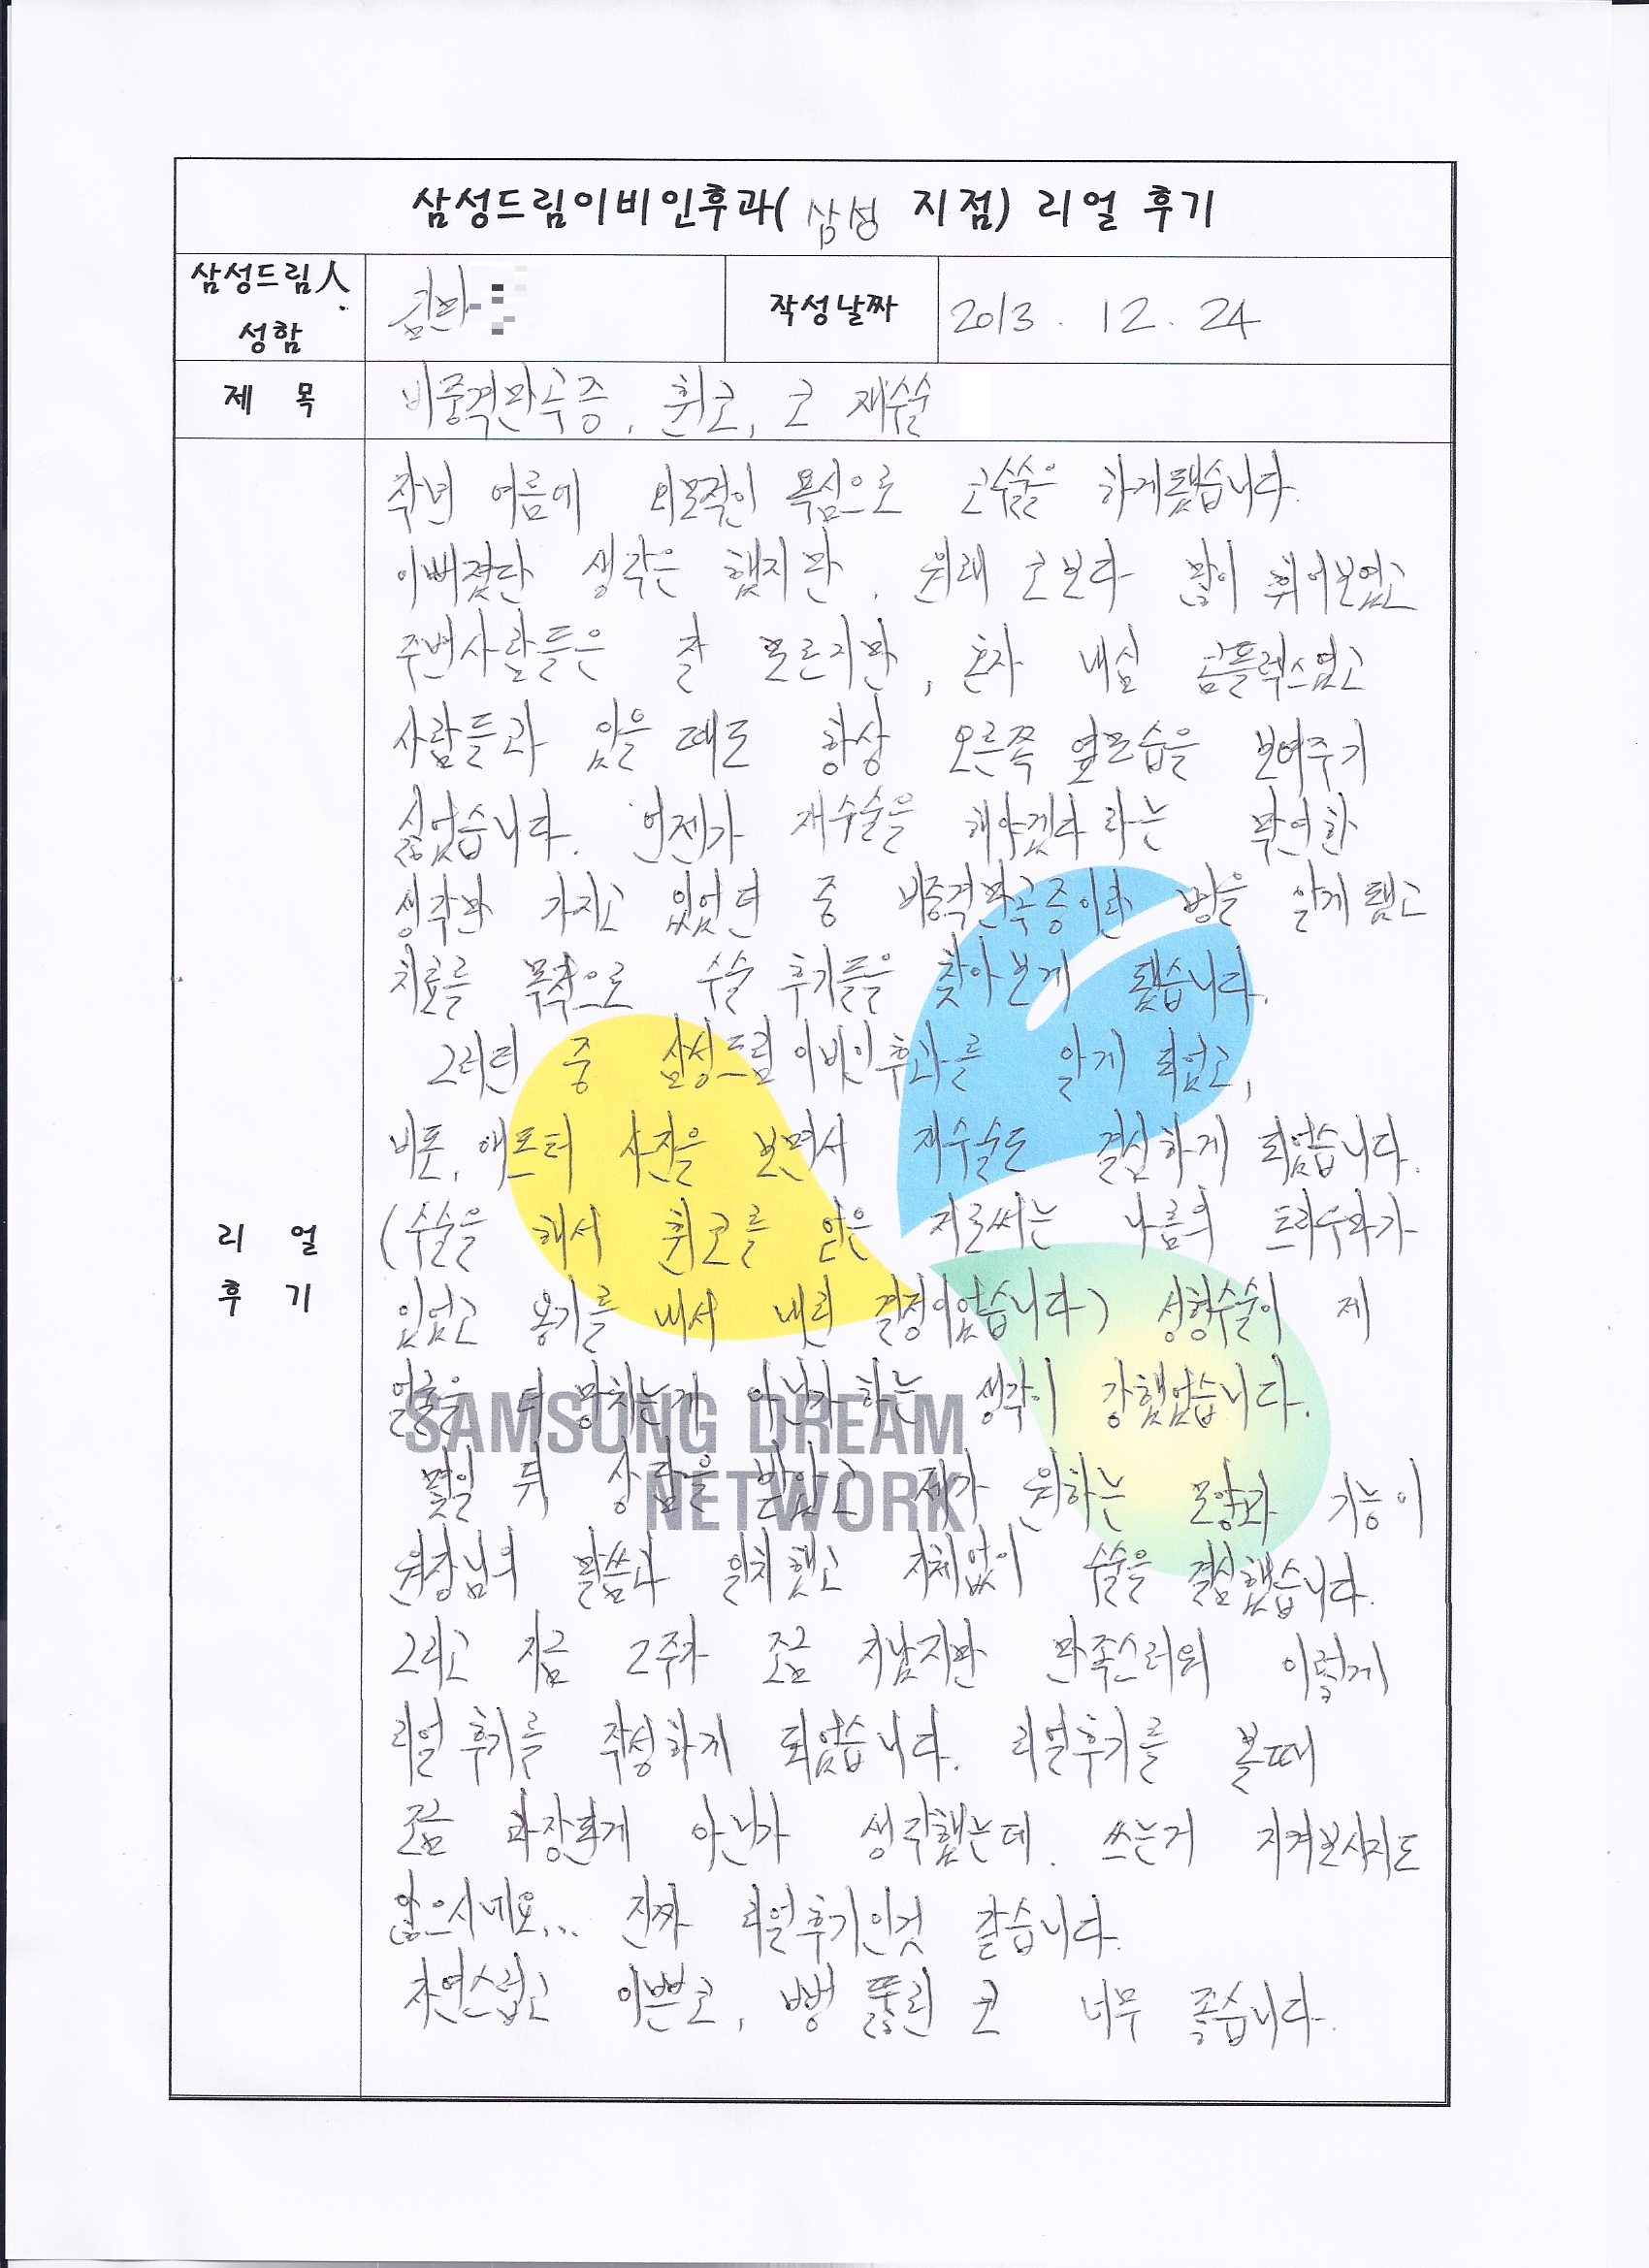 삼성드림이비인후과( 삼성 지점) 리얼 후기
삼성드림人
성함
작성날짜 2013. 12. 24
제 목 비중격만곡증, 휜코, 코 재수술
작년 여름에 외모적인 욕심으로 코수술을 하게됐습니다.
이뻐졌단 생각은 했지만, 원래 코보다 많이 휘어보였고
주변사람들은 잘 모르지만, 혼자 내심 콤플렉스였고
사람들과 있을 때도 항상 오른쪽 옆모습을 보여주기
싫었습니다. 언젠가 재수술을 해야겠다 라는 막연한
생각만 가지고 있었던 중 비중격만곡증이란 병을 알게됐고
치료를 목적으로 수술 후기들을 찾아보게 됐습니다.
그러던 중 삼성드림 이비인후과를 알게 되었고,
비포, 애프터 사진을 보면서 재수술도 결심하게 되었습니다.
(수술을 해서 휜코를 얻은 저로써는 나름의 트라우마가
있었고 용기를 내서 내린 결정이었습니다) 성형수술이 제
얼굴을 더 망치는게 아닌가하는 생각이 강했었습니다.
몇일 뒤 상담을 받았고 제가 원하는 모양과 기능이
원장님의 말씀과 일치했고 지체없이 수술을 결심했습니다.
그리고 지금 2주차 조금 지났지만 만족스러워 이렇게
리얼 후기를 작성하게 되었습니다. 리얼후기를 볼때
조금 과장된게 아닌가 생각했는데, 쓰는거 지켜보시지도
않으시네요... 진짜 리얼후기인것 같습니다.
자연스럽고 이쁜코, 뻥 뚫린 코 너무 좋습니다.
리 얼
후 기
SAMSUNG DREAM
NETWORK